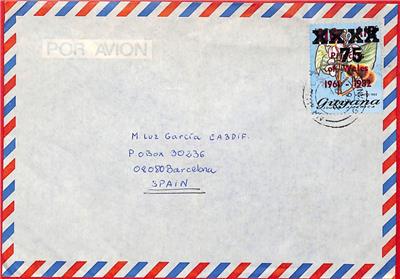 POR AVION
75
of Wales
1961 - 1982
Guyana
M. Luz García CABDIF.
P.O Box 30236
08080 Barcelona
SPAIN